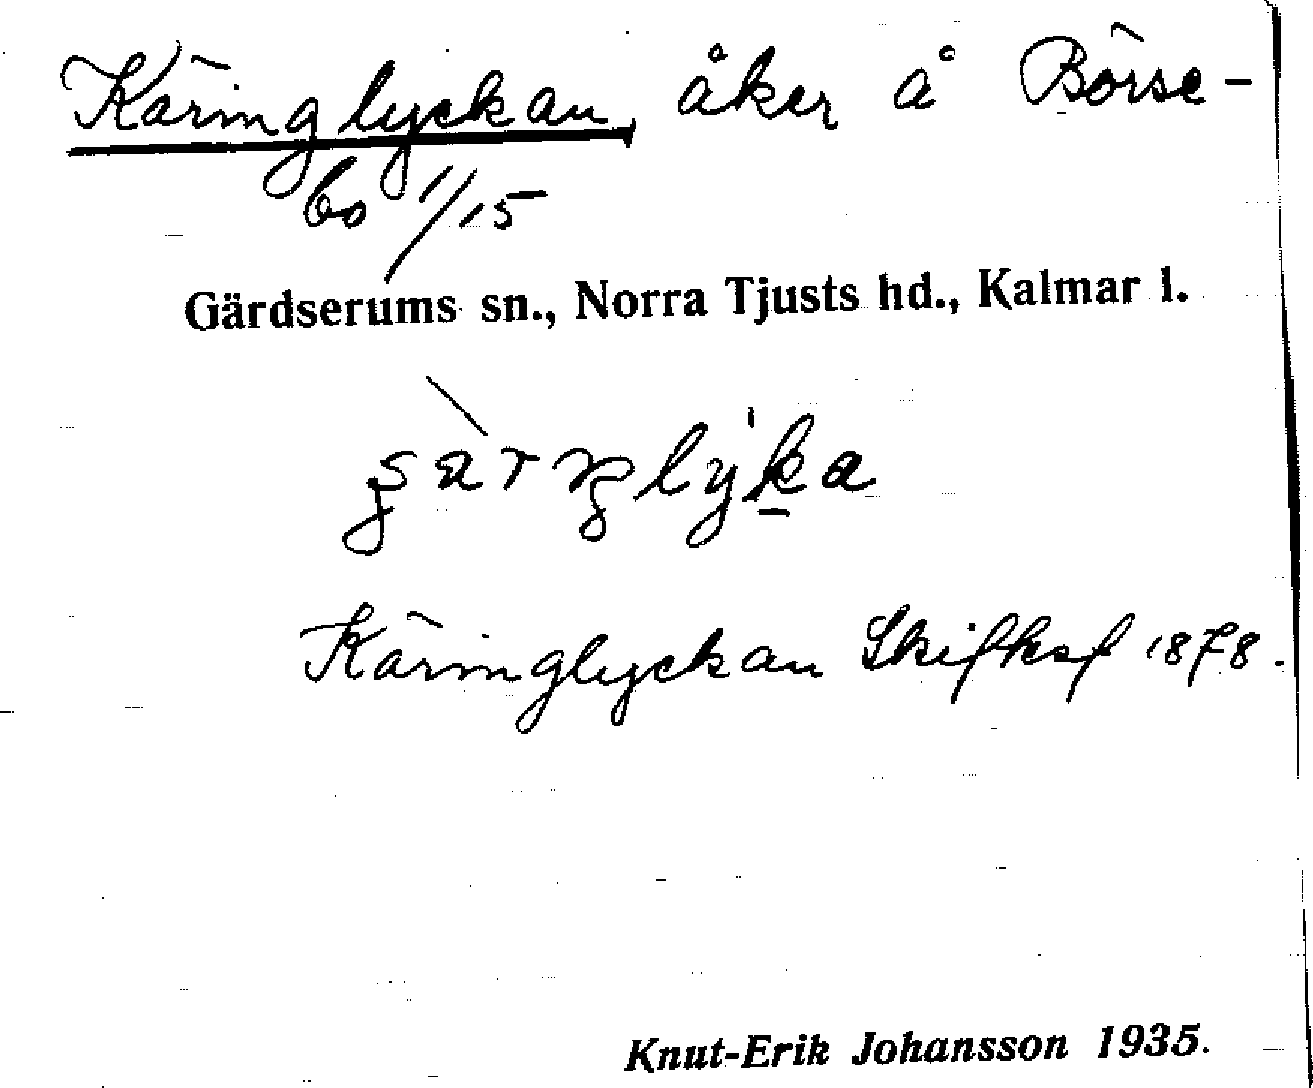 Käringlyckan, åker å Börse-
bo 1/15
Gärdserums sn., Norra Tjusts hd., Kalmar l.
Käringlyckan Skifksf 1878.
Knut-Erik Johansson 1935.